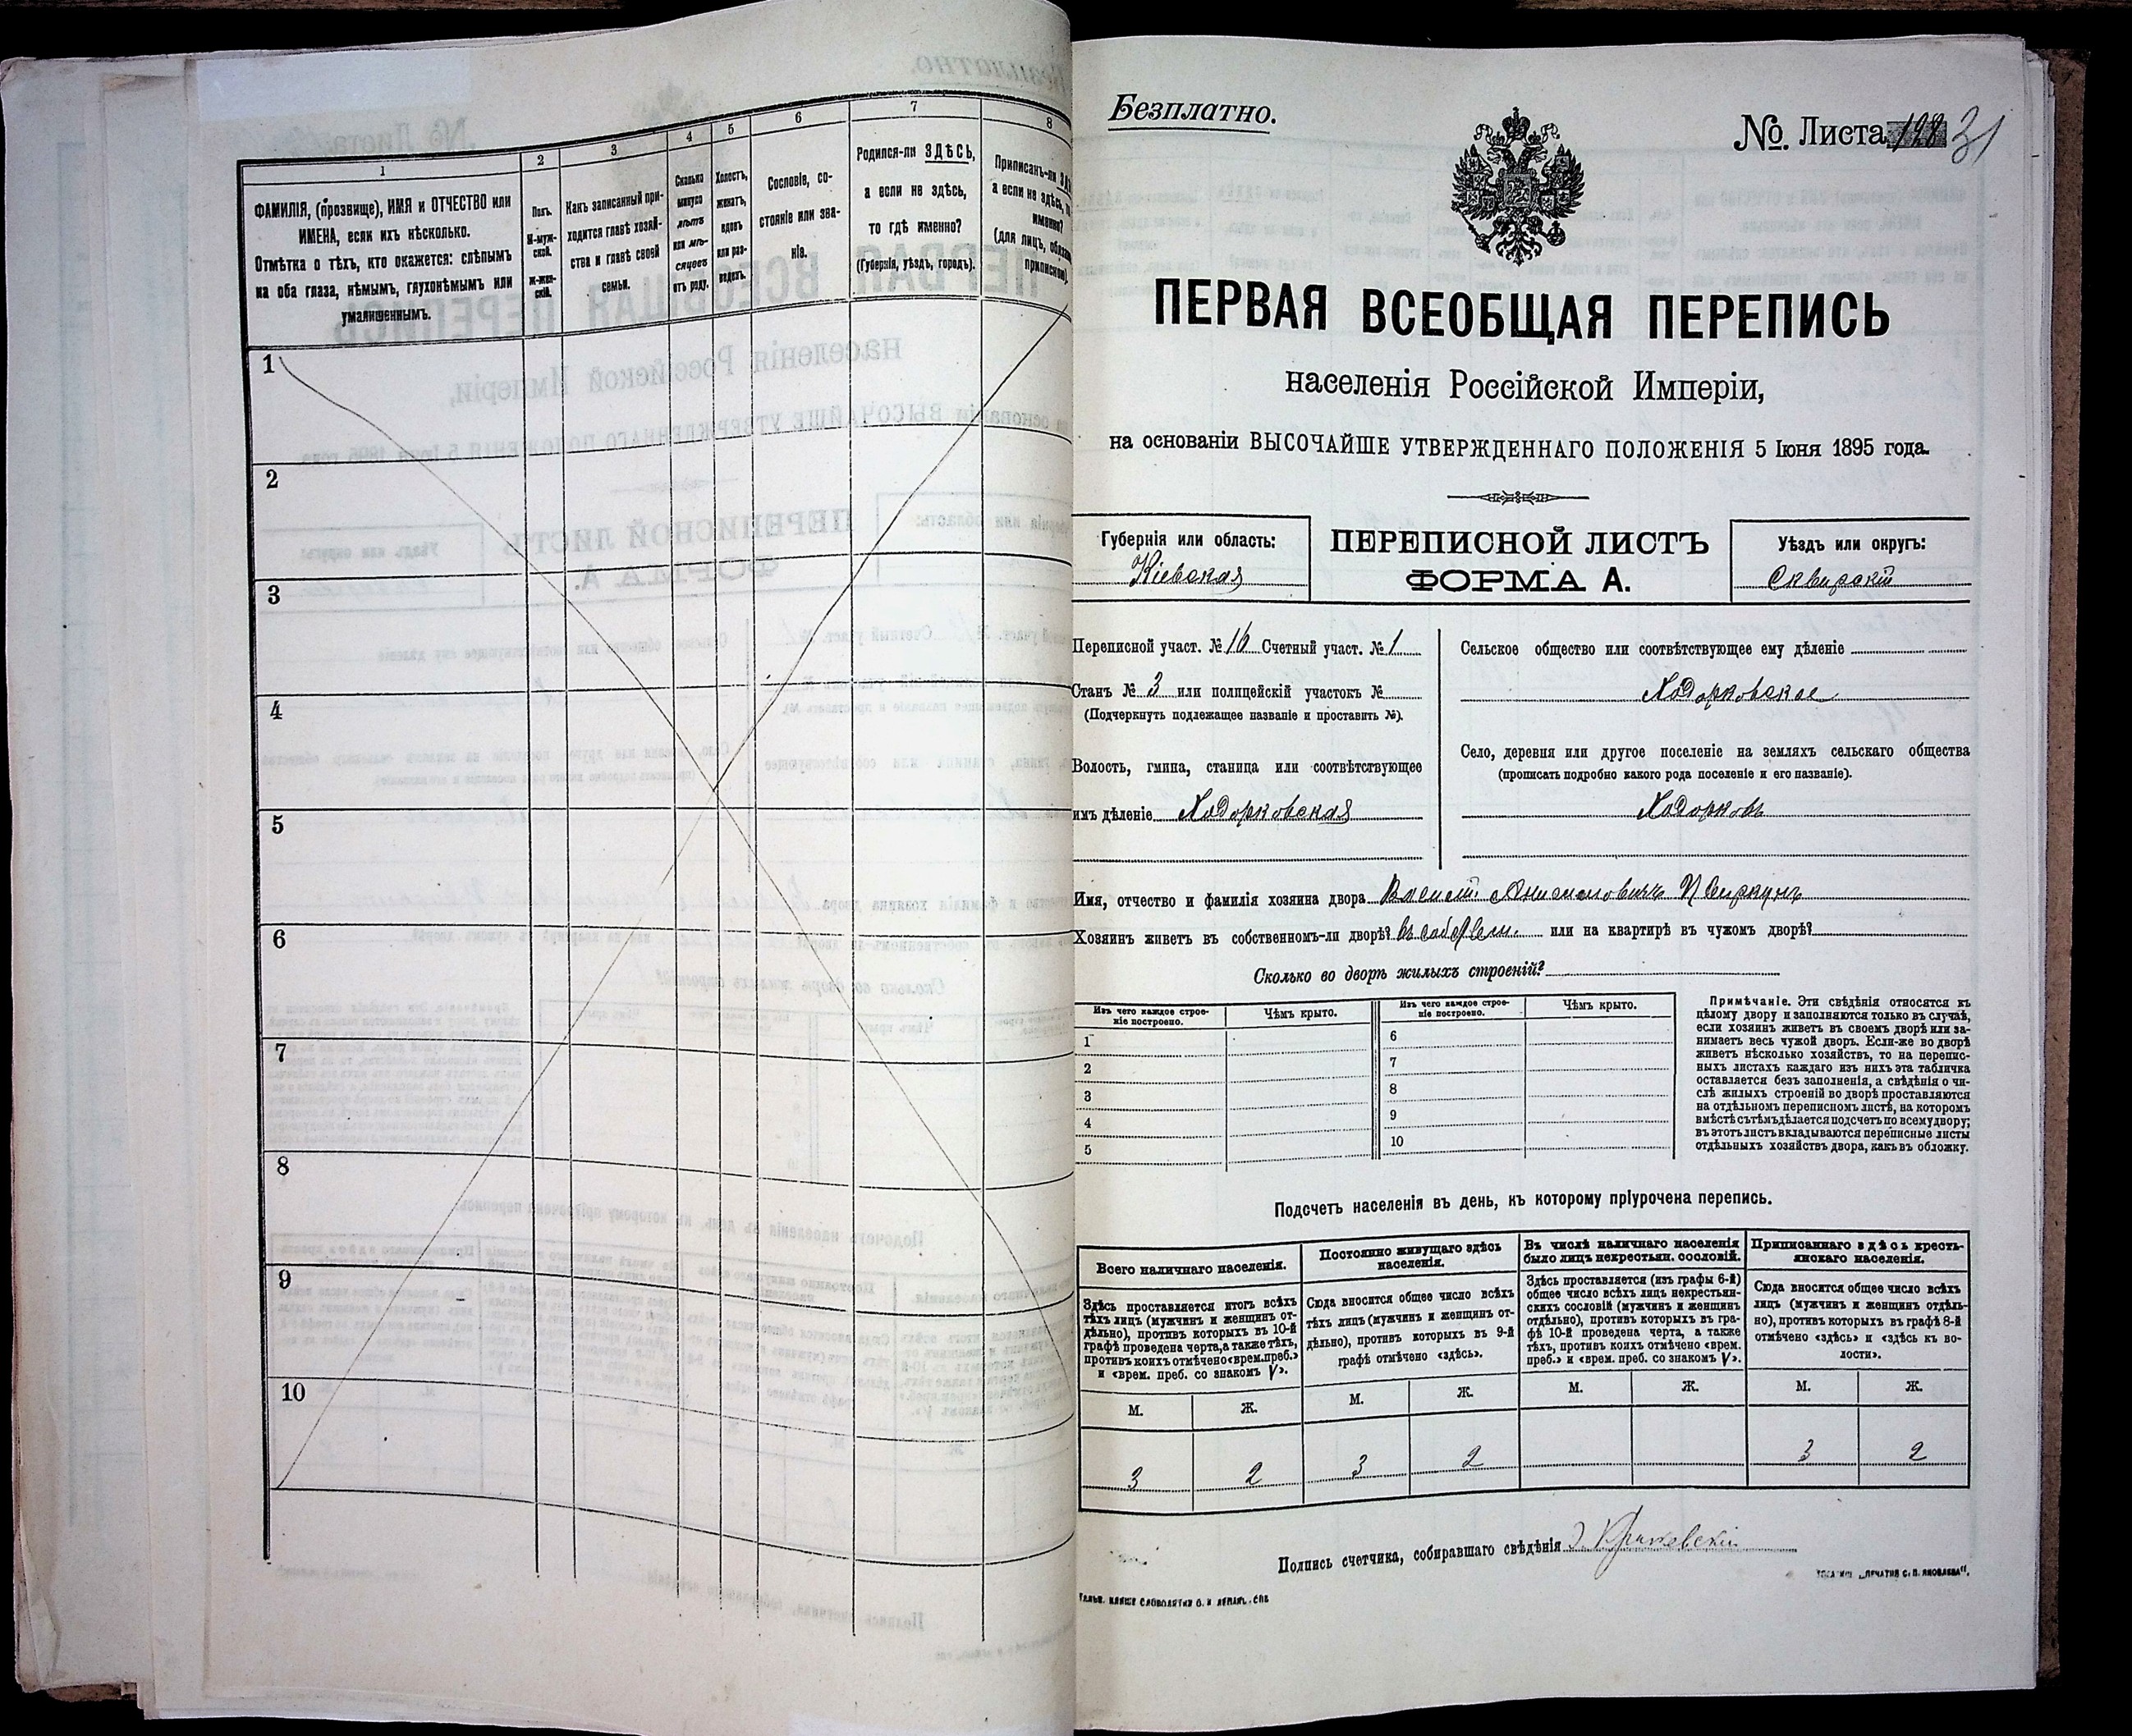 1
2
3
4
5
6
7
8
ФАМИЛІЯ, (прозвище), ИМЯ и ОТЧЕСТВО или
ИМЕНА, если ихъ нѣсколько.
Отмѣтка о тѣхъ, кто окажется: слѣпымъ
на оба глаза, нѣмымъ, глухонѣмымъ или
умалишеннымъ.
Полъ.
М-муж-
ской.
Ж-жен-
скій.
Какъ записанный при-
ходится главѣ хозяй-
ства и главѣ своей
семьи.
Сколько
минуло
лѣтъ
или мѣ-
сяцевъ
отъ роду.
Холостъ,
женатъ,
вдовъ
или раз-
веденъ.
Сословіе, со-
стояніе или зва-
ніе.
Родился-ли ЗДѢСЬ,
а если не здѣсь,
то гдѣ именно?
(Губернія, уѣздъ, городъ).
Приписанъ-ли
а если не здѣсь,
именно?
(для лицъ,
1
2
3
4
5
6
7
8
9
10
Безплатно.
№ Листа 128 31
ПЕРВАЯ ВСЕОБЩАЯ ПЕРЕПИСЬ
населенія Россійской Имперіи,
на основаніи ВЫСОЧАЙШЕ УТВЕРЖДЕННАГО ПОЛОЖЕНІЯ 5 Іюня 1895 года.
Губернія или область:
Кіевская
ПЕРЕПИСНОЙ ЛИСТЪ
ФОРМА А.
Уѣздъ или округъ:
Сквирскій
Переписной участ. № 16 Счетный участ. № 1
Станъ № 3 или полицейскій участокъ №
(Подчеркнуть подлежащее названіе и проставить №).
Волость, гмина, станица или соотвѣтствующее
имъ дѣленіе Ходорковская
Сельское общество или соотвѣтствующее ему дѣленіе
Ходорковское
Село, деревня или другое поселеніе на земляхъ сельскаго общества
(прописать подробно какого рода поселеніе и его названіе).
Ходорковъ
Имя, отчество и фамилія хозяина двора
Хозяинъ живетъ въ собственномъ-ли дворѣ? или на квартирѣ въ чужомъ дворѣ?
Сколько во дворѣ жилыхъ строеній?
Изъ чего каждое строе-
ніе построено.
Чѣмъ крыто.
Изъ чего каждое строе-
ніе построено.
Чѣмъ крыто.
1
2
3
4
5
6
7
8
9
10
Примѣчаніе. Эти свѣдѣнія относятся къ
цѣлому двору и заполняются только въ случаѣ,
если хозяинъ живетъ въ своемъ дворѣ или за-
нимаетъ весь чужой дворъ. Если-же во дворѣ
живетъ нѣсколько хозяйствъ, то на перепис-
ныхъ листахъ каждаго изъ нихъ эта табличка
оставляется безъ заполненія, а свѣдѣнія о чи-
слѣ жилыхъ строеній во дворѣ проставляются
на отдѣльномъ переписномъ листѣ, на которомъ
вмѣстѣ съ тѣмъ дѣлается подсчетъ по всему двору;
въ этотъ листъ вкладываются переписные листы
отдѣльныхъ хозяйствъ двора, какъ въ обложку.
Подсчетъ населенія въ день, къ которому пріурочена перепись.
Всего наличнаго населенія.
Здѣсь проставляется итогъ всѣхъ
тѣхъ лицъ (мужчинъ и женщинъ от-
дѣльно), противъ которыхъ въ 10-й
графѣ проведена черта, а также тѣхъ,
противъ коихъ отмѣчено «врем. преб.»
и «врем. преб. со знакомъ V».
Постоянно живущаго здѣсь
населенія.
Сюда вносится общее число всѣхъ
тѣхъ лицъ (мужчинъ и женщинъ от-
дѣльно), противъ которыхъ въ 9-й
графѣ отмѣчено «здѣсь».
Въ числѣ наличнаго населенія
было лицъ некрестьян. сословій.
Здѣсь проставляется (изъ графы 6-й)
общее число всѣхъ лицъ некрестьян-
скихъ сословій (мужчинъ и женщинъ
отдѣльно), противъ которыхъ въ гра-
фѣ 10-й проведена черта, а также
тѣхъ, противъ коихъ отмѣчено «врем.
преб.» и «врем. преб. со знакомъ V».
Приписаннаго здѣсь кресть-
янскаго населенія.
Сюда вносится общее число всѣхъ
лицъ (мужчинъ и женщинъ отдѣль-
но), противъ которыхъ въ графѣ 8-й
отмѣчено «здѣсь» и «здѣсь къ во-
лости».
М. Ж. М. Ж. М. Ж. М. Ж.
3 2 3 2 3 2
Подпись счетчика, собиравшаго свѣдѣнія